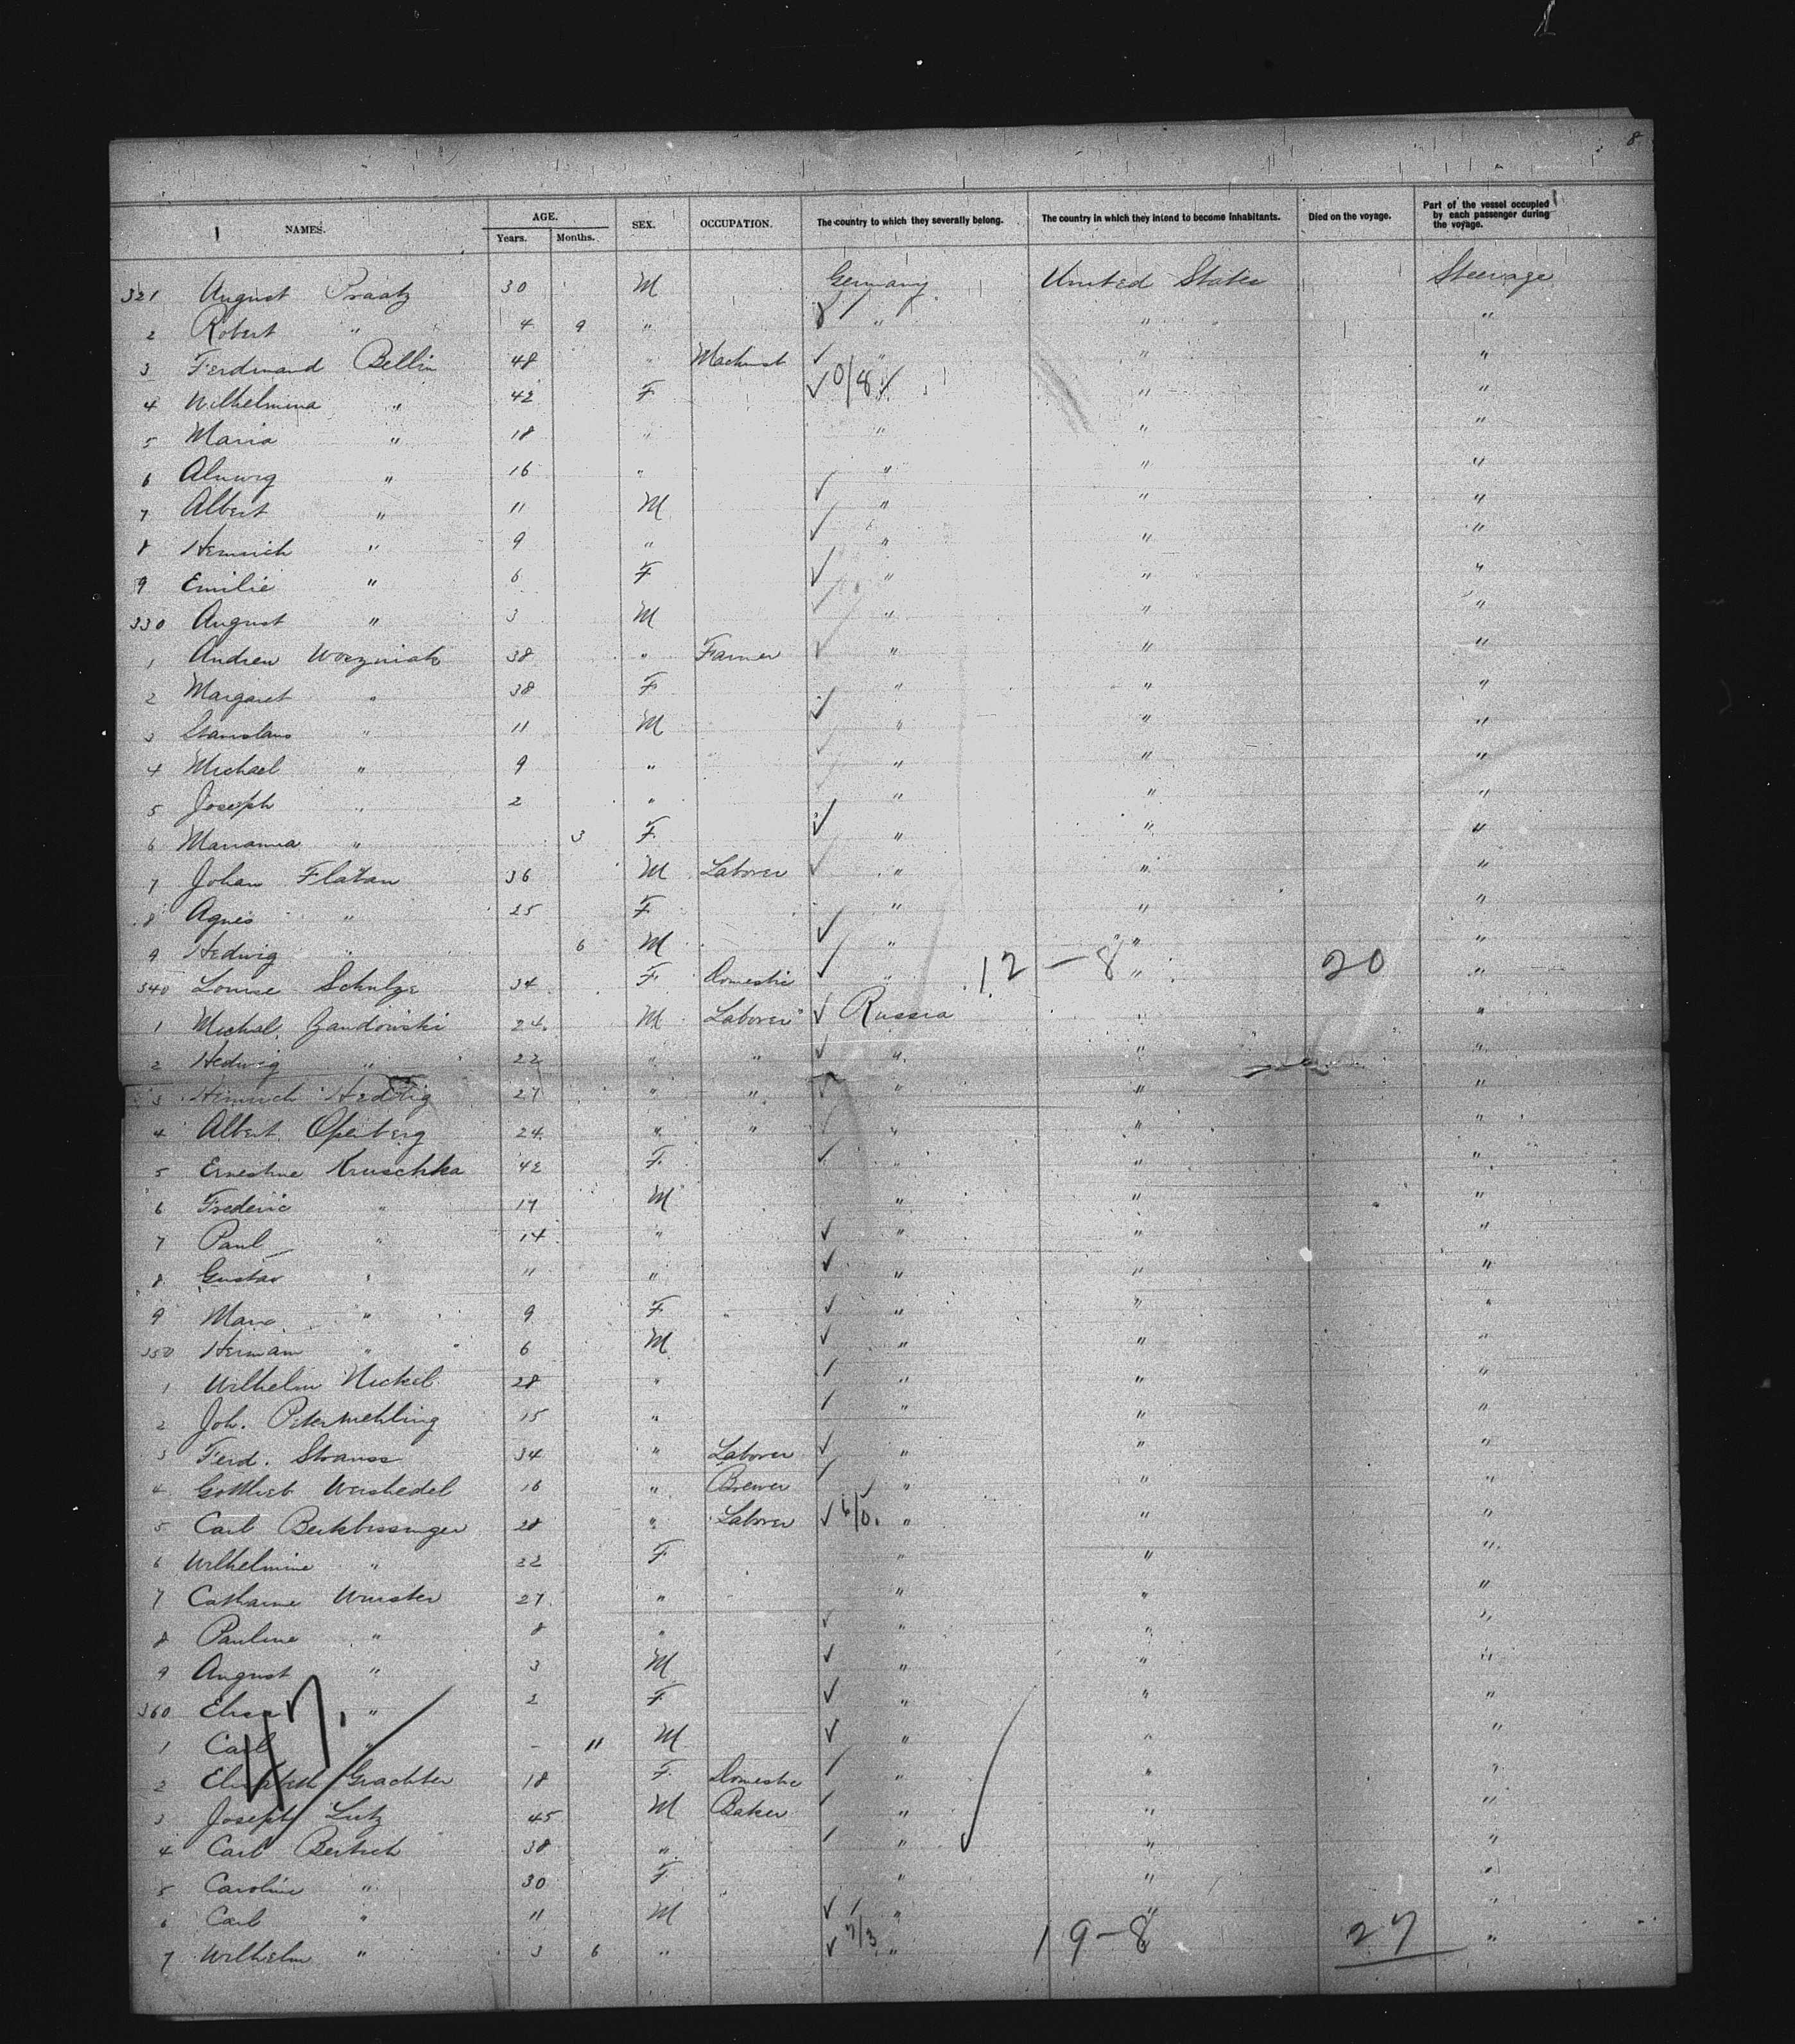 8
NAMES. AGE. Years. Months. SEX. OCCUPATION. The country to which they severally belong. The country in which they intend to become inhabitants. Died on the voyage. Part of the vessel occupied by each passenger during the voyage.
321 August Praatz 30 M Germany United States Steerage
2 Robert " 4 9 " " " "
3 Ferdinand Bellin 48 " Machinist " " "
4 Wilhelmina " 42 F 0/8 " "
5 Maria " 18 " " " "
6 Alwwig " 16 " " " "
7 Albert " 11 M " " "
8 Heinrich " 9 " " " "
9 Emilie " 6 F " " "
330 August " 3 M " " "
1 Andrew Woszniak 38 " Farmer " " "
2 Margaret " 38 F " " "
3 Stanislaus " 11 M " " "
4 Michael " 9 " " " "
5 Joseph " 2 " " " "
6 Marianna " 3 F " " "
7 Johan Flatau 36 M Laborer " " "
8 Agnes " 25 F " " "
9 Hedwig " 6 M " " "
340 Louise Schulze 34 F Domestic " 12-8 " 20 "
1 Michal Gandowski 24 M Laborer Russia " "
2 Hedwig " 22 " " " " "
3 Heinrich Hedtig 27 " " " " "
4 Albert Openberg 24 " " " " "
5 Ernestine Kruschka 42 F " " "
6 Frederic " 17 M " " "
7 Paul " 14 " " " "
8 Gustav " 11 " " " "
9 Marie " 9 F " " "
350 Herman " 6 M " " "
1 Wilhelm Nickel 28 " " " "
2 Joh. Petermehling 15 " " " "
3 Ferd. Strauss 34 " Laborer " " "
4 Gottlieb Weishedel 16 " Brewer " " "
5 Carl Beikbissinger 28 " Laborer 6/0. " " "
6 Wilhelmine " 22 F " " "
7 Catharine Wurster 27 " " " "
8 Pauline " 8 " " " "
9 August " 3 M " " "
360 Elise " 2 F " " "
1 Carl " - 11 M " " "
47.
2 Elisabeth Grachter 18 F Domestic " " "
3 Joseph Lutz 45 M Baker " " "
4 Carl Bertsch 38 " " " "
5 Caroline " 30 F " " "
6 Carl " 11 M " " "
7 Wilhelm " 3 6 " 7/3. " 19-8 27 "